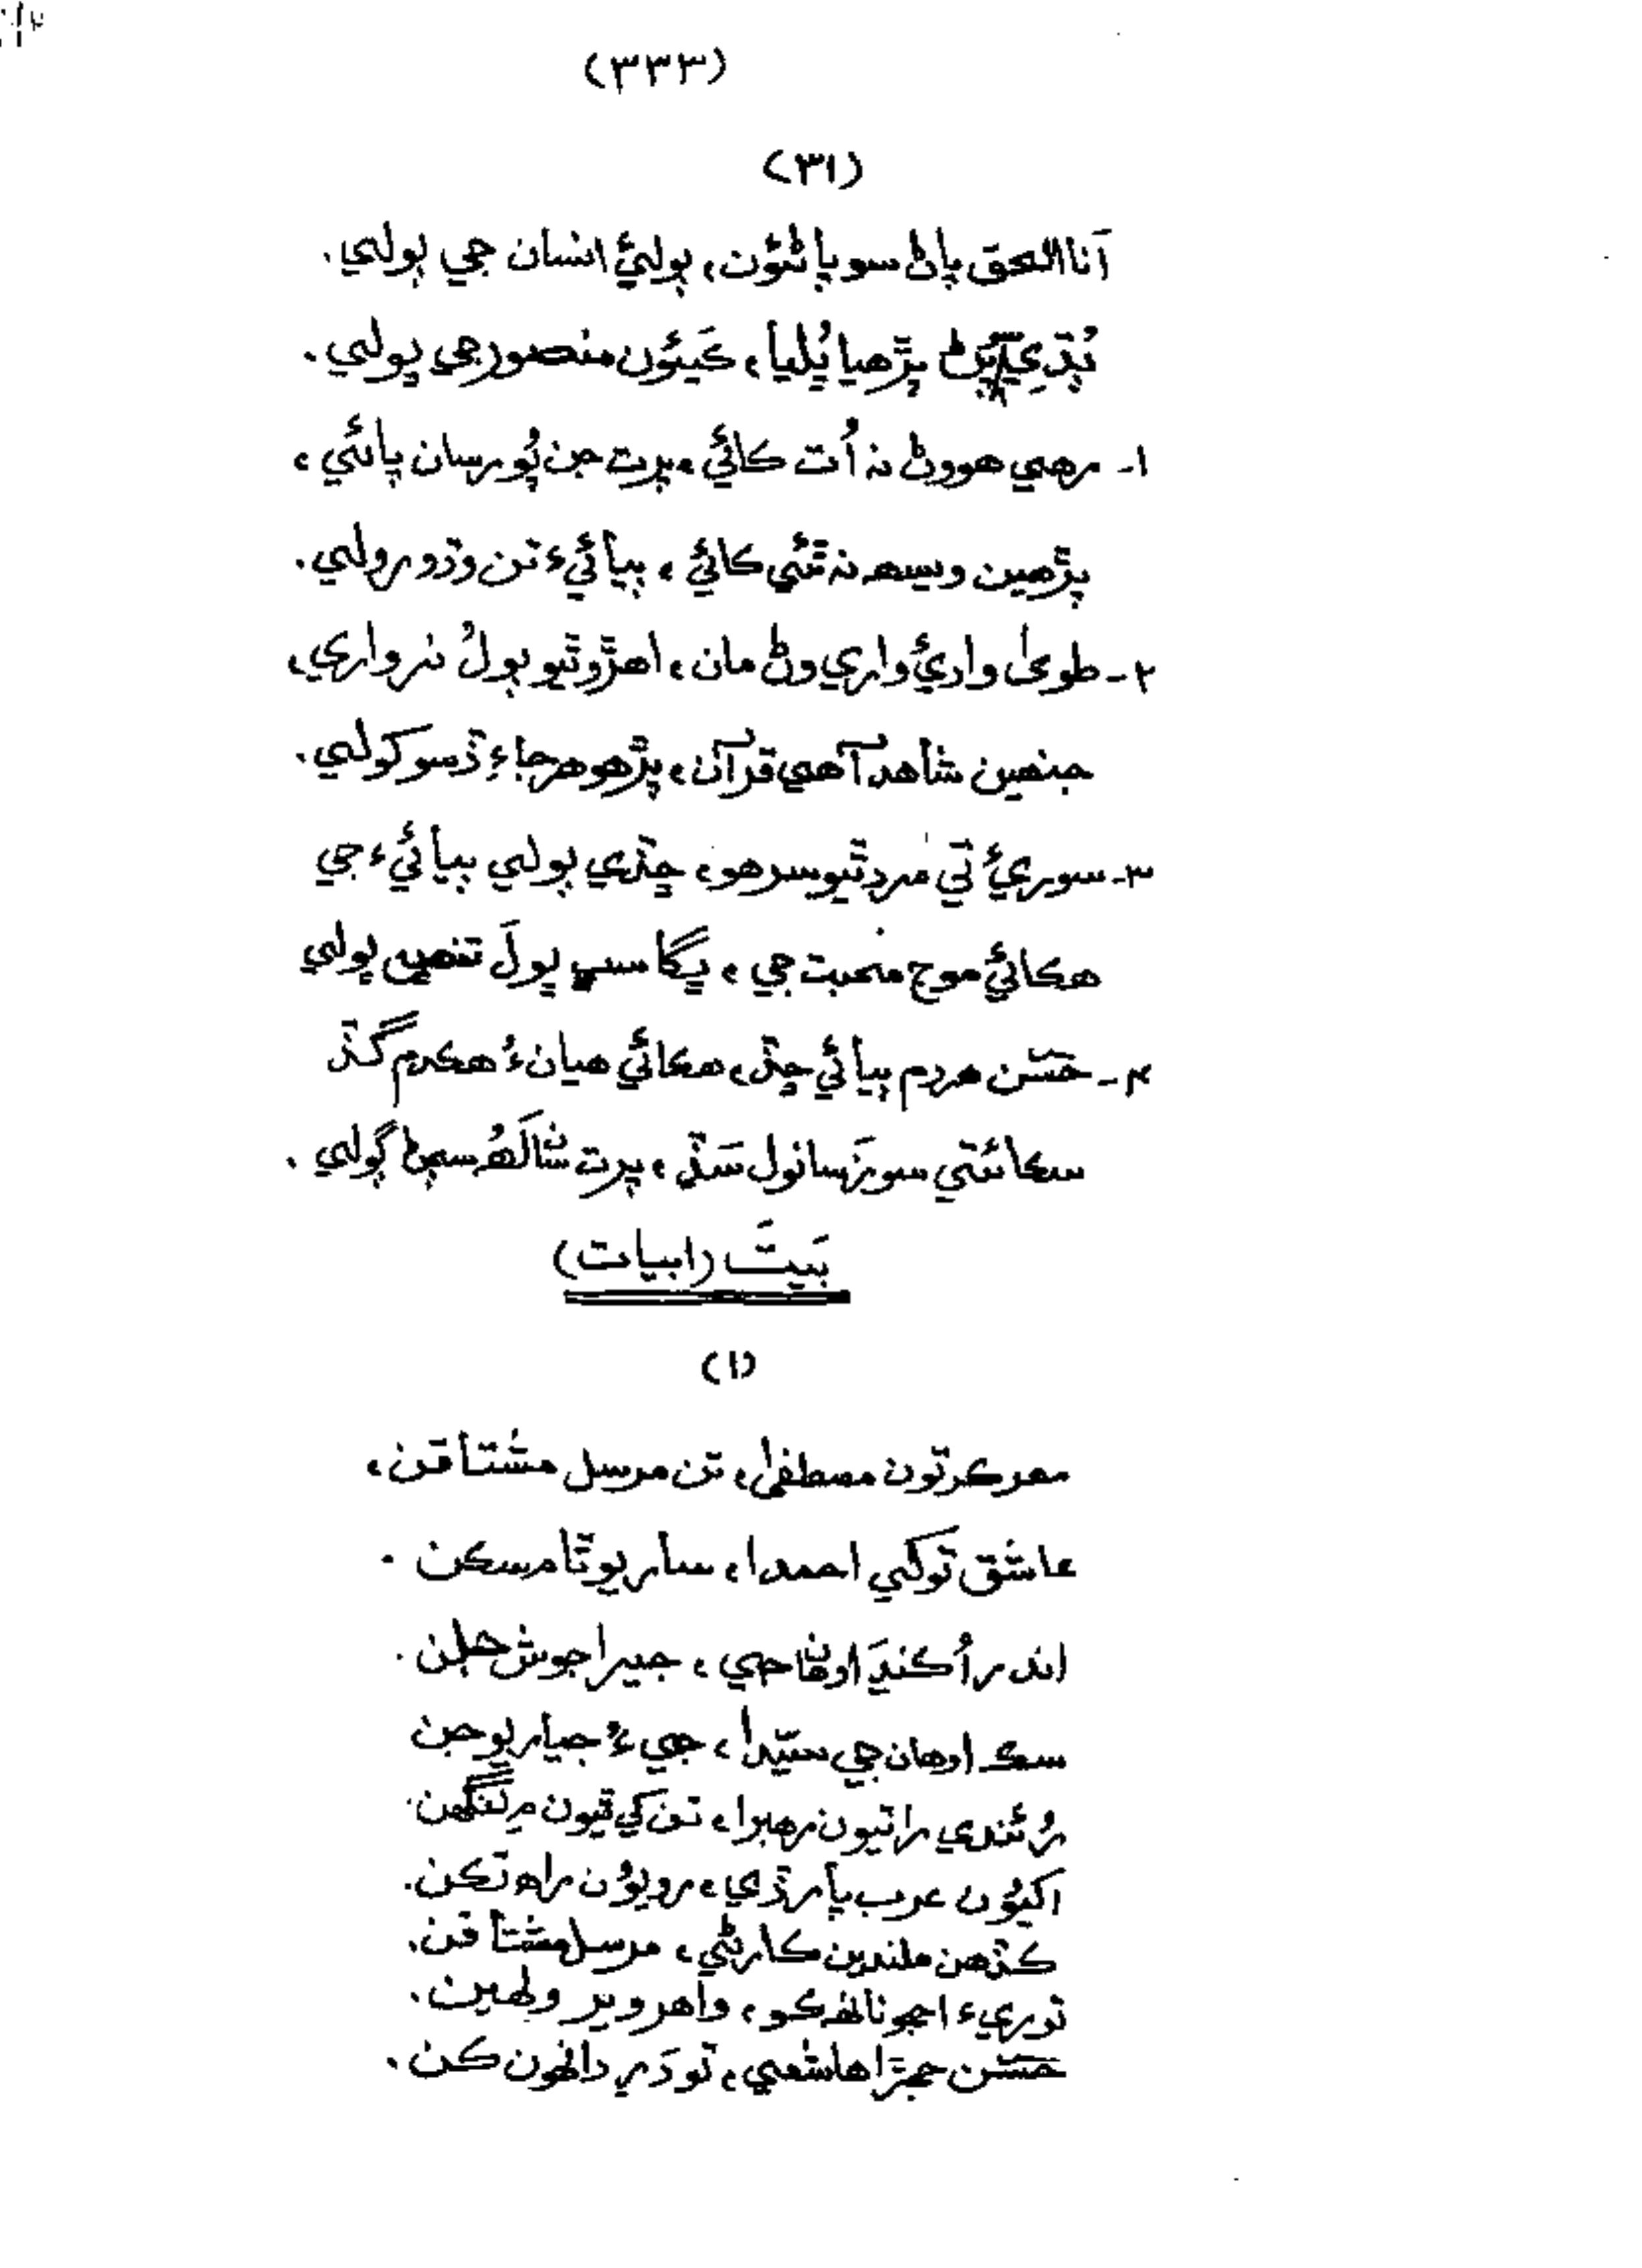 (٣٣٣)
(٣١)
اَنا الحق پاڻ سو پاڻئون، ٻوليءَ انسان جي ٻولي.
پڙهيا ڀُليا، ڪَيئون منصور جي ڀولي.
١۔ رهي هووڻ نہ اُت ڪائي، پرت جن پُور سان پائي،
پڙهين ويسھ نہ ٿئي ڪائي، ٻيائيءَ تن وڌو رولي.
٢۔ طويٰ واديءَ واري وڻ مان، اهڙو ٿيو ٻولُ نرواري،
جنھين شاهد آهي قرآن، پڙهو هر جاءِ ڏسو کولي.
٣۔ سوريءَ تي مرد ٿيو سرهو، ڇڏي ٻولي ٻيائيءَ جي
هڪائي موج محبت جي، ڀڳا سڀ ڀولَ تنھين ڀولي
۴۔ حَسَن هردم ٻيائي ڇڏ، هڪائي هيانءُ هڪدم گڏ
سڪائتي سوز سانول سَڏ، پرت شالَ سمڻ ڳولي.
بَيتَ (ابيات)
(١)
مھر ڪر تون مصطفيٰ، تن مرسل مشتاقن،
عاشق توکي احمدا، ساريو ٿا مسڪن.
اندر اُڪنڍَ اوهان جي، جيرا جوش جلن.
سڪ اوهان جي سيّدا، جيءُ جياريو جن
رُئندي راتيون رهبرا، تن کي ٿيون گھن.
اکيُون عرب پار ڏي، رويون راه تڪن.
ڪڏهن ملندين ڪارڻي، مرسل مشتاقن.
توريءَ اجهو نالھ ڪو، واهر وير ولهين.
حَسَن حجرا هاشمي، تو دَرِ دانھون ڪن.